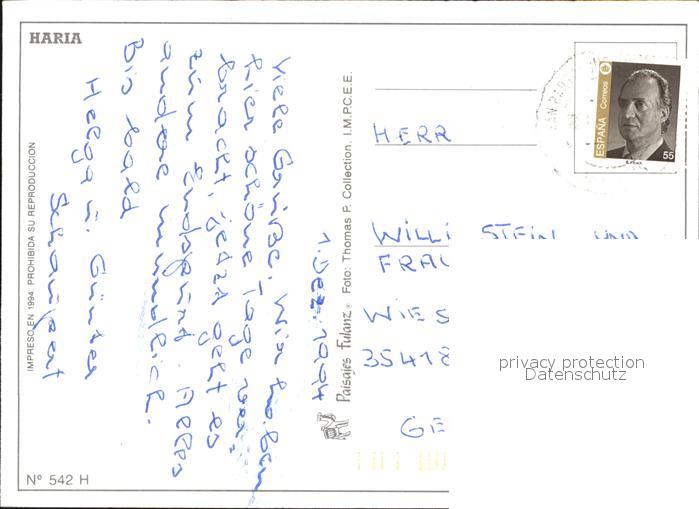 HARIA
Viele Grüße. Wir haben
hier schöne Tage ver-
bracht, jetzt geht es
zum Endspurt. Alles
andere mündlich.
Bis bald
Helga u. Günter
1. Dez. 1994
HERR
WILLI STEIN UND
FRAU
WIES
35418
GE
ESPAÑA Correos
55
privacy protection
Datenschutz
IMPRESO EN 1994 PROHIBIDA SU REPRODUCCION
Paisajes Fulanz. Foto: Thomas P. Collection. I.M.P.C.E.E.
Nº 542 H